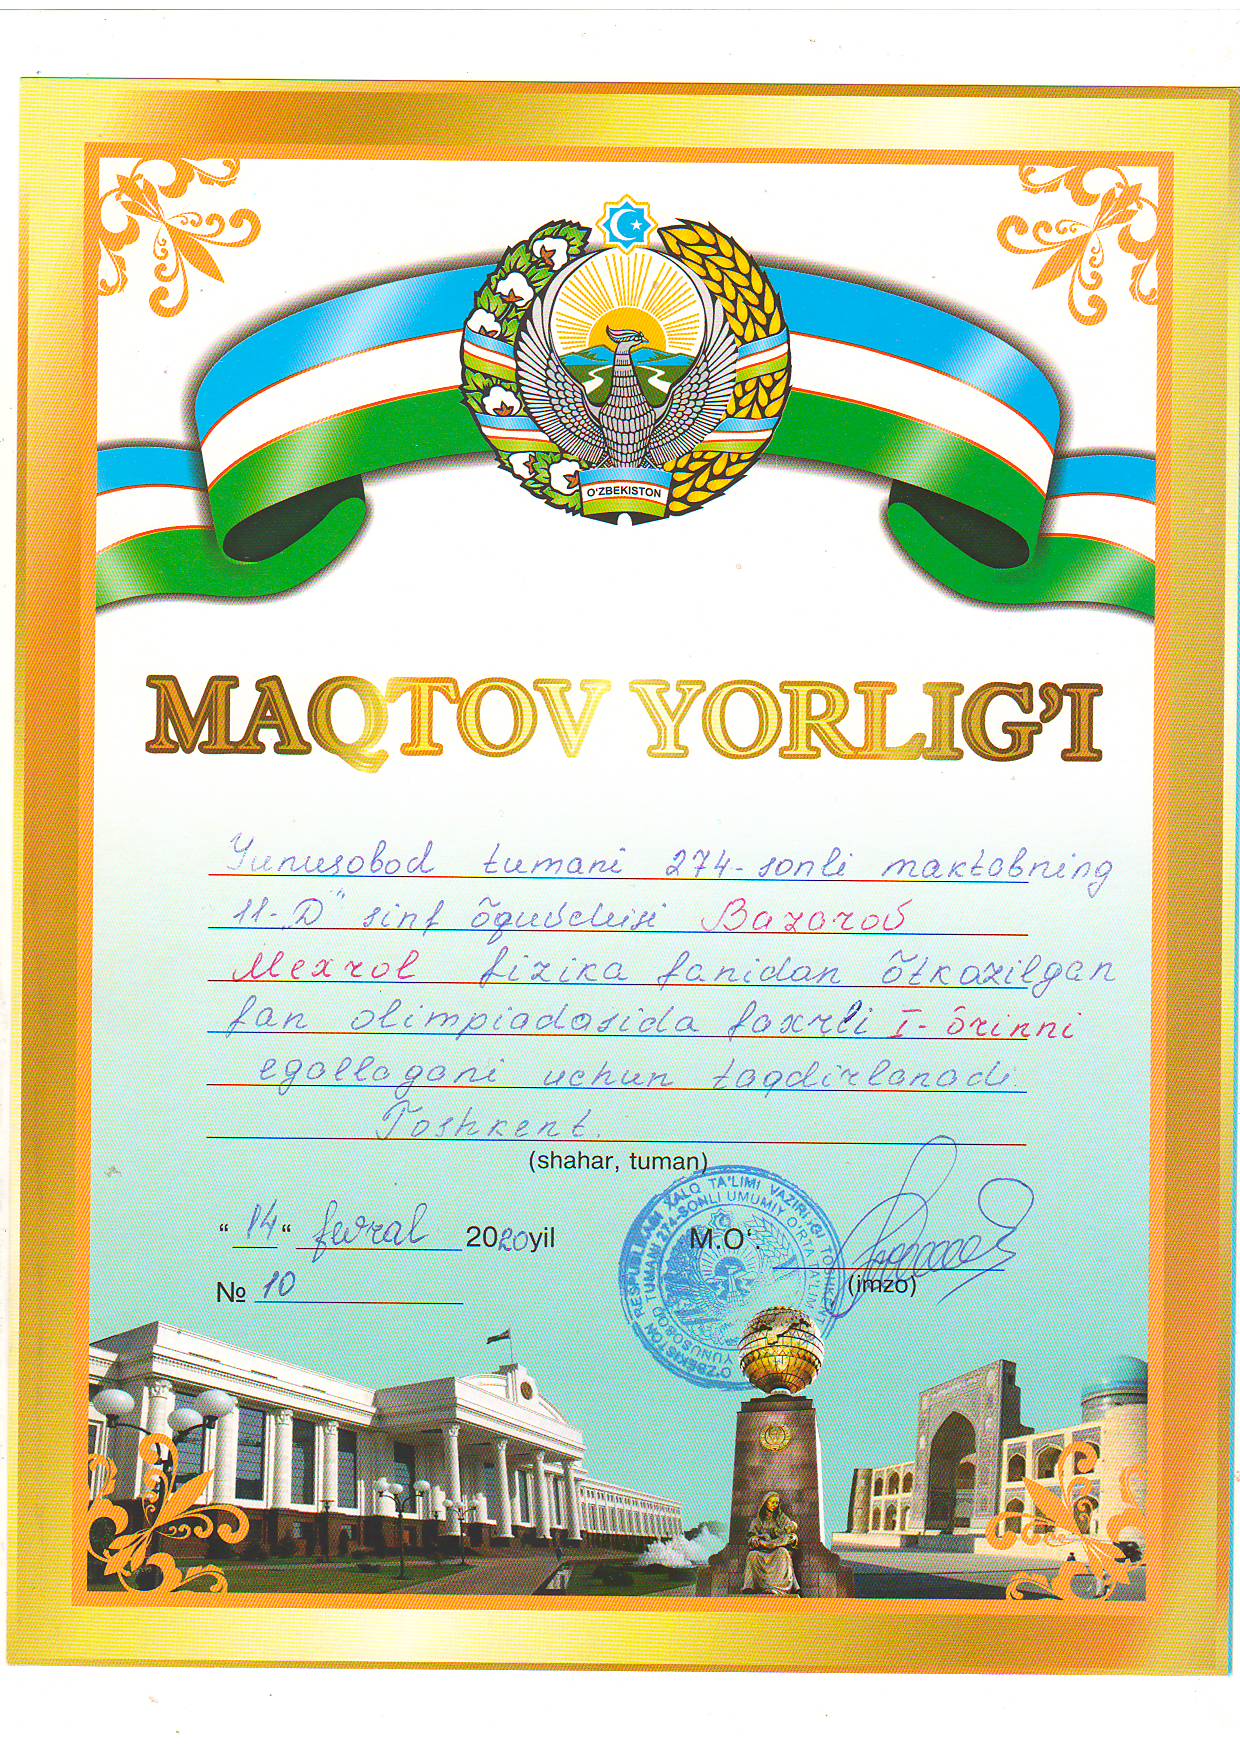 O'ZBEKISTON
MAQTOV YORLIG'I
Yunusobod tumani 274-sonli maktabning
11-D" sinf õquvchisi Bazarov
Mexrol fizika fanidan õtkazilgan
fan olimpiadasida faxrli I-õrinni
egallagani uchun taqdirlanadi.
Toshkent.
(shahar, tuman)
“ 14 “ fevral 2020 yil M.O‘.
(imzo)
№ 10
O'ZBEKISTON RESPUBLIKASI XALQ TA'LIMI VAZIRLIGI TOSHKENT
YUNUSOBOD TUMANI 274-SONLI UMUMIY O'RTA TA'LIM